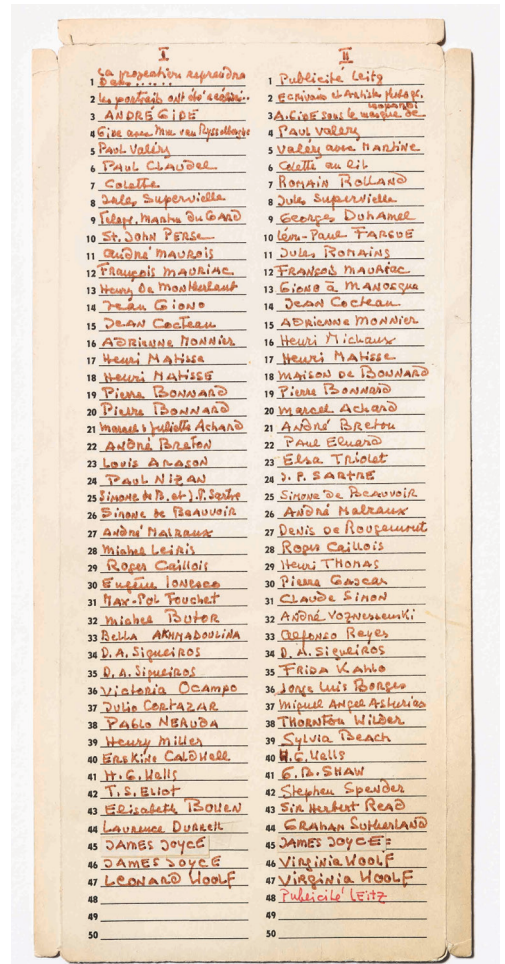 I
1 La projection reprendra
Dans......
2 Les portraits ont été réalisés..
3 ANDRÉ GIDE
4 Gide avec Mme van Rysselberghe
5 Paul Valéry
6 PAUL CLAUDEL
7 Colette
8 Jules Supervielle
9 Martin du Gard
10 St. John PERSE
11 André MAUROIS
12 François MAURIAC
13 Henry De Montherlant
14 Jean Giono
15 JEAN Cocteau
16 ADRIENNE MONNIER
17 Henri MATISSE
18 Henri MATISSE
19 Pierre BONNARD
20 Pierre BONNARD
21 Marcel & Juliette Achard
22 ANDRÉ Breton
23 Louis ARAGON
24 PAUL NIZAN
25 Simone de B. et J.P. Sartre
26 Simone de Beauvoir
27 André Malraux
28 Michel Leiris
29 Roger Caillois
30 Eugène Ionesco
31 MAX-Pol Fouchet
32 Michel BUTOR
33 BELLA AKHMADOULINA
34 D.A. Siqueiros
35 D.A. Siqueiros
36 Victoria OCAMPO
37 Julio CORTAZAR
38 PABLO NERUDA
39 Henry Miller
40 ERSKINE CALDWELL
41 H.G. Wells
42 T.S. ELIOT
43 Elisabeth BOWEN
44 LAURENCE DURRELL
45 JAMES JOYCE
46 JAMES JOYCE
47 LEONARD WOOLF
48
49
50
II
1 Publicité Leitz
2 Ecrivains et Artistes photogr.
3 A. GIDE sous le masque de Leopardi
4 PAUL Valéry
5 Valéry avec MARTINE
6 Colette au lit
7 ROMAIN ROLLAND
8 Jules Supervielle
9 Georges DUHAMEL
10 Léon-Paul FARGUE
11 Jules ROMAINS
12 FRANÇOIS MAURIAC
13 GIONO à MANOSQUE
14 JEAN Cocteau
15 ADRIENNE MONNIER
16 Henri Michaux
17 Henri MATISSE
18 MAISON de BONNARD
19 Pierre BONNARD
20 Marcel Achard
21 André Breton
22 PAUL Eluard
23 Elsa Triolet
24 J.P. SARTRE
25 Simone de BEAUVOIR
26 André Malraux
27 Denis de Rougemont
28 Roger Caillois
29 Henri THOMAS
30 Pierre Gascar
31 CLAUDE SIMON
32 André Voznessenski
33 Alfonso Reyes
34 D.A. Siqueiros
35 FRIDA KAHLO
36 Jorge Luis Borges
37 Miguel Angel Asturias
38 THORNTON Wilder
39 Sylvia Beach
40 H.G. Wells
41 G.B. SHAW
42 Stephen Spender
43 Sir Herbert READ
44 GRAHAM SUTHERLAND
45 JAMES JOYCE
46 Virginia WOOLF
47 VIRGINIA WOOLF
48 Publicité LEITZ
49
50